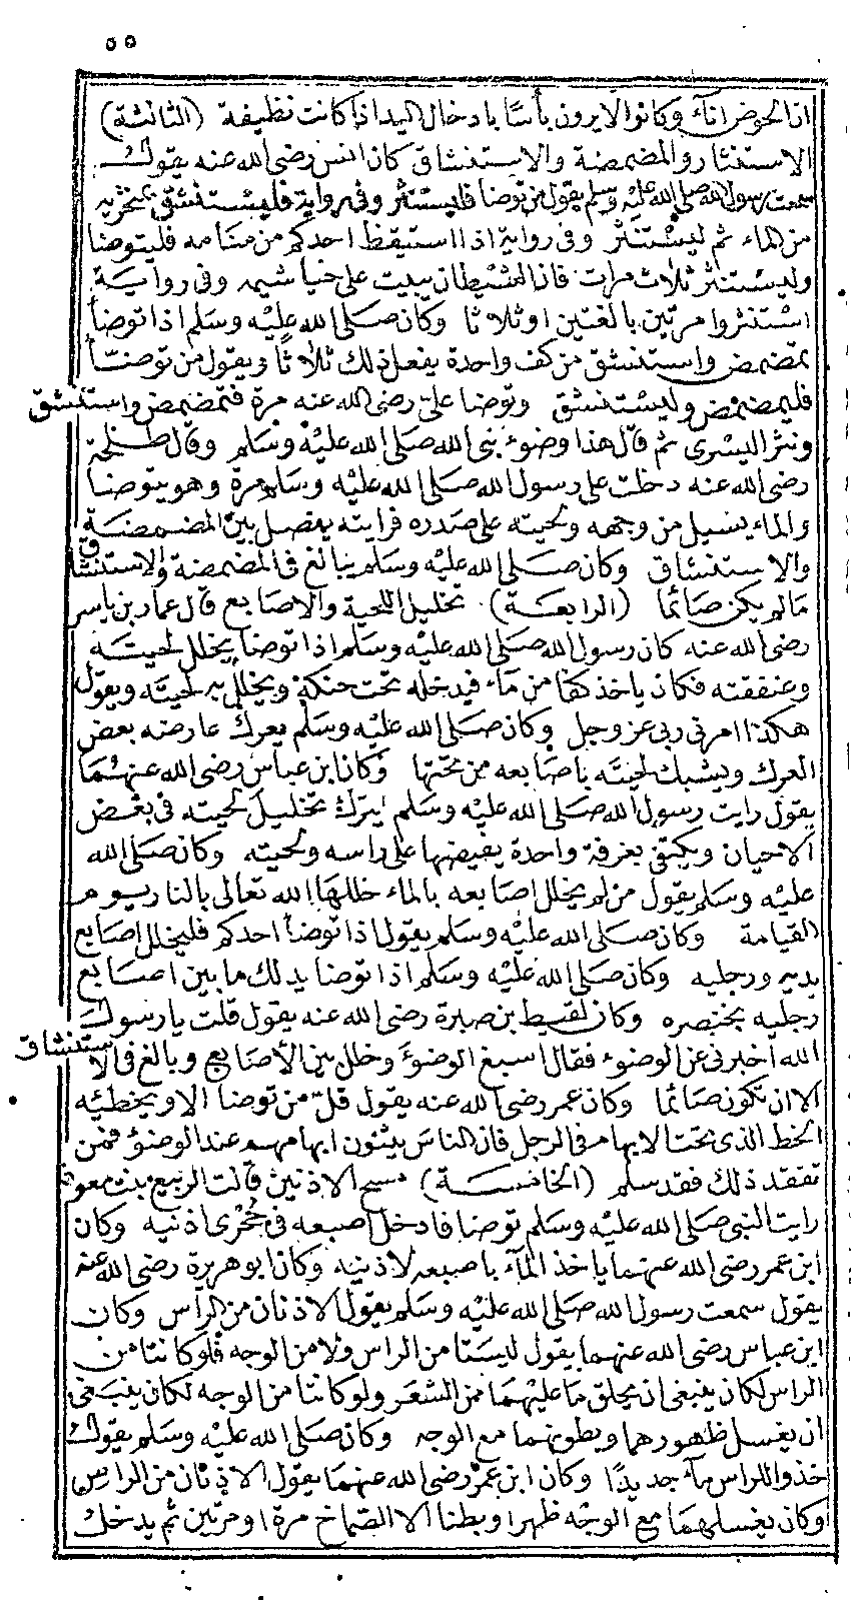 ٥٥
انا الحوض اناء وكانوا لايرون بأسا بادخال اليد اذا كانت نظيفة (الثالثة)
الاستنثار والمضمضة والاستنشاق كان انس رضى الله عنه يقول
سمعت رسول الله صلى الله عليه وسلم يقول من توضا فليستنثر وفى رواية فليستنشق بمنخريه
من الماء ثم ليستنثر وفى رواية اذا استيقظ احدكم من منامه فليتوضا
وليستنثر ثلاث مرات فان الشيطان يبيت على خياشيمه وفى رواية
استنثروا مرتين بالغتين او ثلاثا وكان صلى الله عليه وسلم اذا توضأ
تمضمض واستنشق من كف واحدة يفعل ذلك ثلاثا ويقول من توضأ
فليمضمض وليستنشق وتوضا على رضى الله عنه مرة فتمضمض واستنشق
ونثر اليسرى ثم قال هذا وضوء نبى الله صلى الله عليه وسلم وقال طلحة
رضى الله عنه دخلت على رسول الله صلى الله عليه وسلم مرة وهو يتوضا
والماء يسيل من وجهه ولحيته على صدره فرايته يفصل بين المضمضة
والاستنشاق وكان صلى الله عليه وسلم يبالغ فى المضمضة والاستنشاق
مالم يكن صائما (الرابعة) تخليل اللحية والاصابع قال عمار بن ياسر
رضى الله عنه كان رسول الله صلى الله عليه وسلم اذا توضا يخلل لحيته
وعنفقته فكان ياخذ كفا من ماء فيدخله تحت حنكه ويخلل به لحيته ويقول
هكذا امرنى ربى عز وجل وكان صلى الله عليه وسلم يعرك عارضه بعض
العرك ويشبك لحيته باصابعه من تحتها وكان ابن عباس رضى الله عنهما
يقول رايت رسول الله صلى الله عليه وسلم يترك تخليل لحيته فى بعض
الاحيان ويكتفى بغرفة واحدة يفيضها على راسه ولحيته وكان صلى الله
عليه وسلم يقول من لم يخلل اصابعه بالماء خللها الله تعالى بالنار يوم
القيامة وكان صلى الله عليه وسلم يقول اذا توضأ احدكم فليخلل اصابع
يديه ورجليه وكان صلى الله عليه وسلم اذا توضا يدلك ما بين اصابع
رجليه بخنصره وكان لقيط بن صبرة رضى الله عنه يقول قلت يا رسول
الله اخبرنى عن الوضوء فقال اسبغ الوضوء وخلل بين الأصابع وبالغ فى الاستنشاق
الا ان تكون صائما وكان عمر رضى الله عنه يقول قل من توضا الا ويخطئه
الخط الذى تحت الابهام فى الرجل فان الناس يثنون ابهامهم عند الوضوء فمن
تفقد ذلك فقد سلم (الخامسة) مسح الاذنين قالت الربيع بنت معوذ
رايت النبى صلى الله عليه وسلم توضا فادخل اصبعه فى جحرى اذنيه وكان
ابن عمر رضى الله عنهما ياخذ الماء باصبعه لاذنيه وكان ابو هريرة رضى الله عنه
يقول سمعت رسول الله صلى الله عليه وسلم يقول الاذنان من الرأس وكان
ابن عباس رضى الله عنهما يقول ليستا من الراس ولا من الوجه فلو كانتا من
الراس لكان ينبغى ان يحلق ما عليهما من الشعر ولو كانتا من الوجه لكان ينبغى
ان يغسل ظهورهما وبطونهما مع الوجه وكان صلى الله عليه وسلم يقول
خذوا للراس ماء جديدا وكان ابن عمر رضى الله عنهما يقول الاذنان من الراس
وكان يغسلهما مع الوجه ظهرا وبطنا الا الصماخ مرة او مرتين ثم يدخل